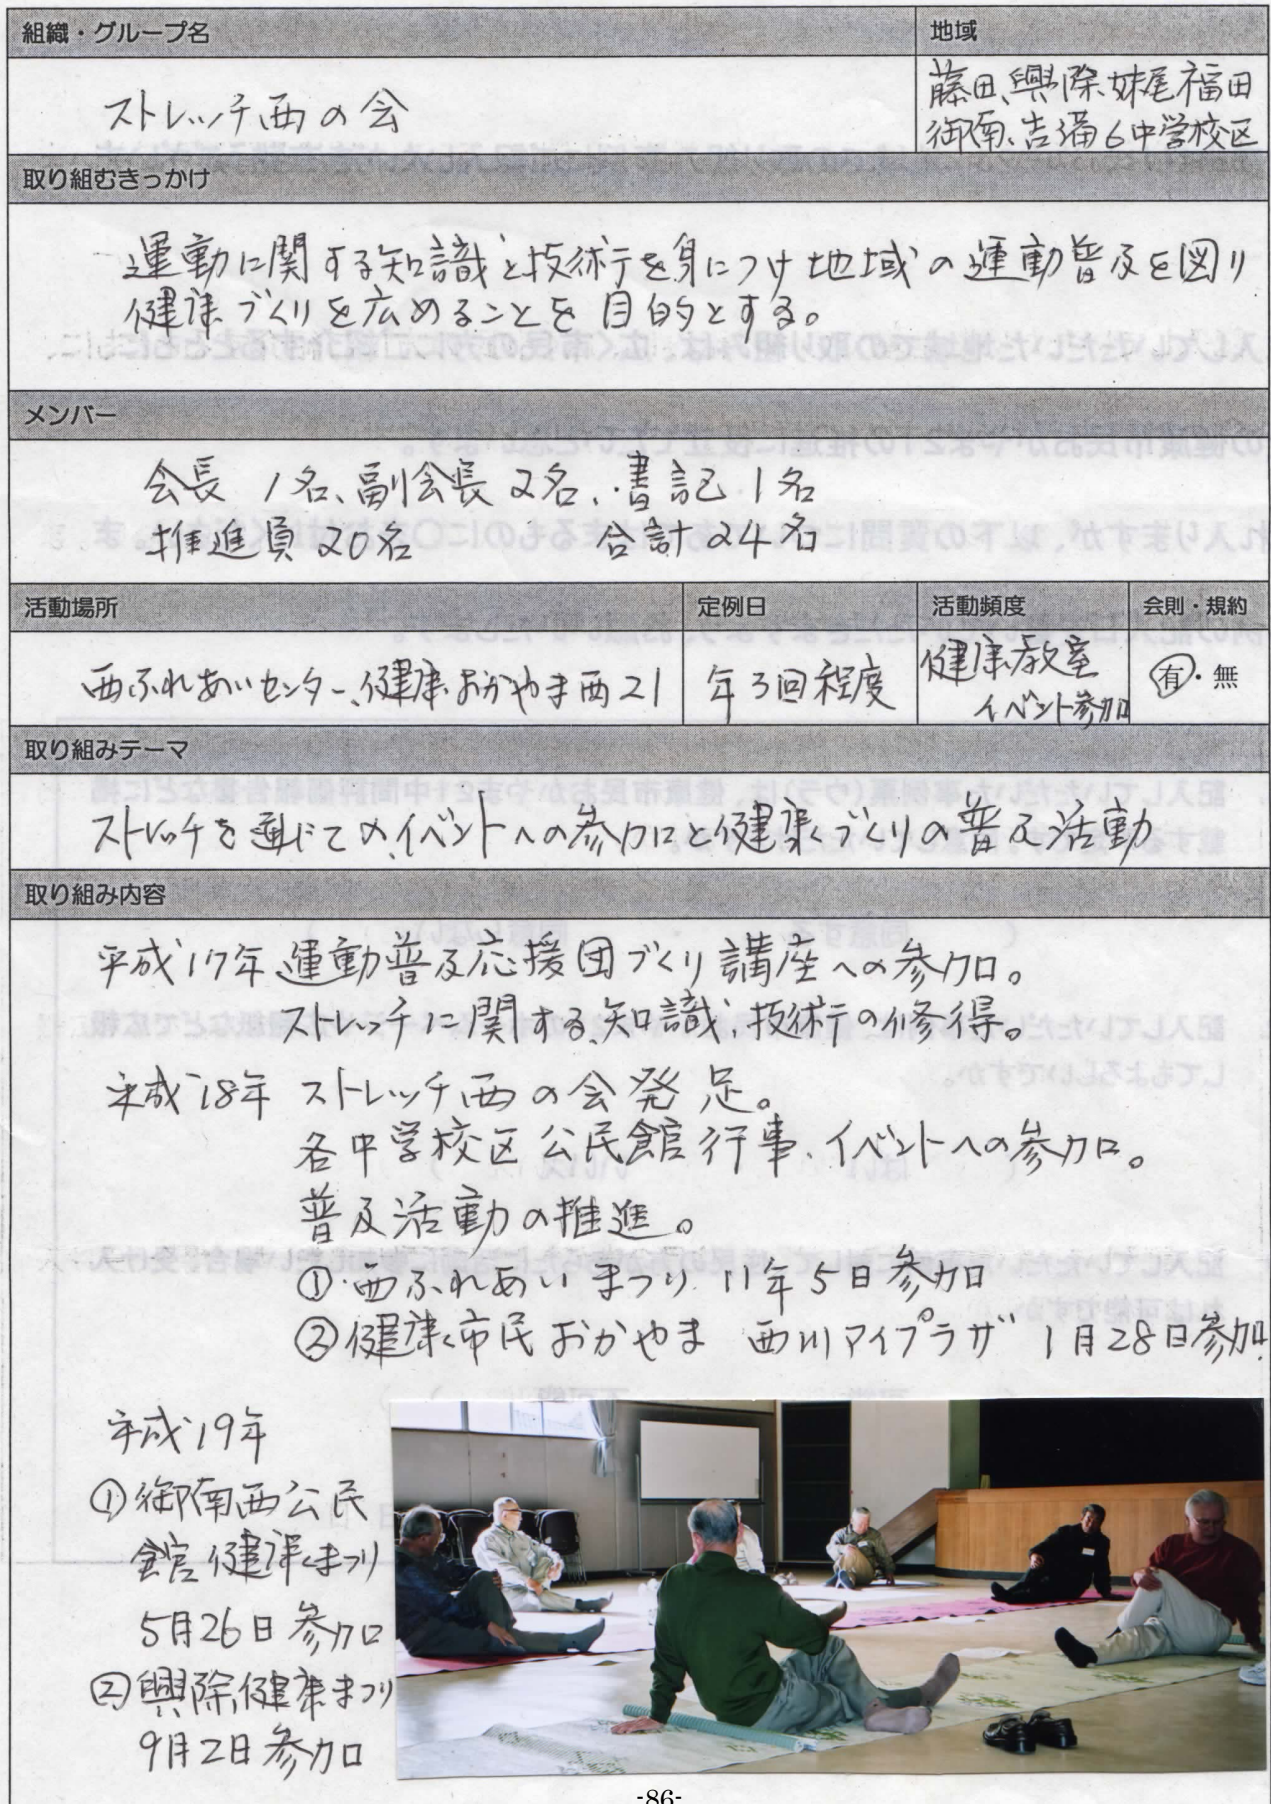 組織・グループ名
地域
ストレッチ西の会
藤田、興除、妹尾、福田
御南、吉備6中学校区
取り組むきっかけ
運動に関する知識と技術を身につけ地域の運動普及を図り
健康づくりを広めることを目的とする。
メンバー
会長 1名、副会長2名、書記 1名
推進員20名 合計24名
活動場所
定例日
活動頻度
会則・規約
西ふれあいセンター、健康おかやま西21
年3回程度
健康教室
イベント参加
有・無
取り組みテーマ
ストレッチを通じてのイベントへの参加と健康づくりの普及活動
取り組み内容
平成17年 運動普及応援団づくり講座への参加。
ストレッチに関する知識、技術の修得。
平成18年 ストレッチ西の会発足。
各中学校区公民館行事、イベントへの参加。
普及活動の推進。
①西ふれあいまつり 11年5日参加
②健康市民おかやま 西川アイプラザ 1月28日参加
平成19年
①御南西公民
館健康まつり
5月26日参加
②興除健康まつり
9月2日参加
-86-